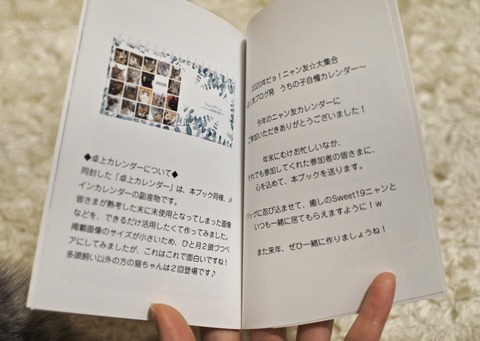 2020
◆卓上カレンダーについて◆
同封した「卓上カレンダー」は、本ブック同様、メ
インカレンダーの副産物です。
皆さまが熟考した末に未使用となってしまった画像
などを、できるだけ活用したくて作ってみました。
掲載画像のサイズが小さいため、ひと月2頭づつペ
アにしてみましたが、これはこれで面白いですね！
多頭飼い以外の方の猫ちゃんは２回登場です♪
2020年だョ！ニャン友☆大集合
ブログ発 うちの子自慢カレンダー～
今年のニャン友カレンダーに
ご参加いただきありがとうございました！
年末にむけお忙しいなか、
それでも参加してくれた参加者の皆さまに、
心を込めて、本ブックを送ります。
バッグに忍び込ませて、癒しのSweet19ニャンと
いつも一緒に居てもらえますように！w
また来年、ぜひ一緒に作りましょうね！